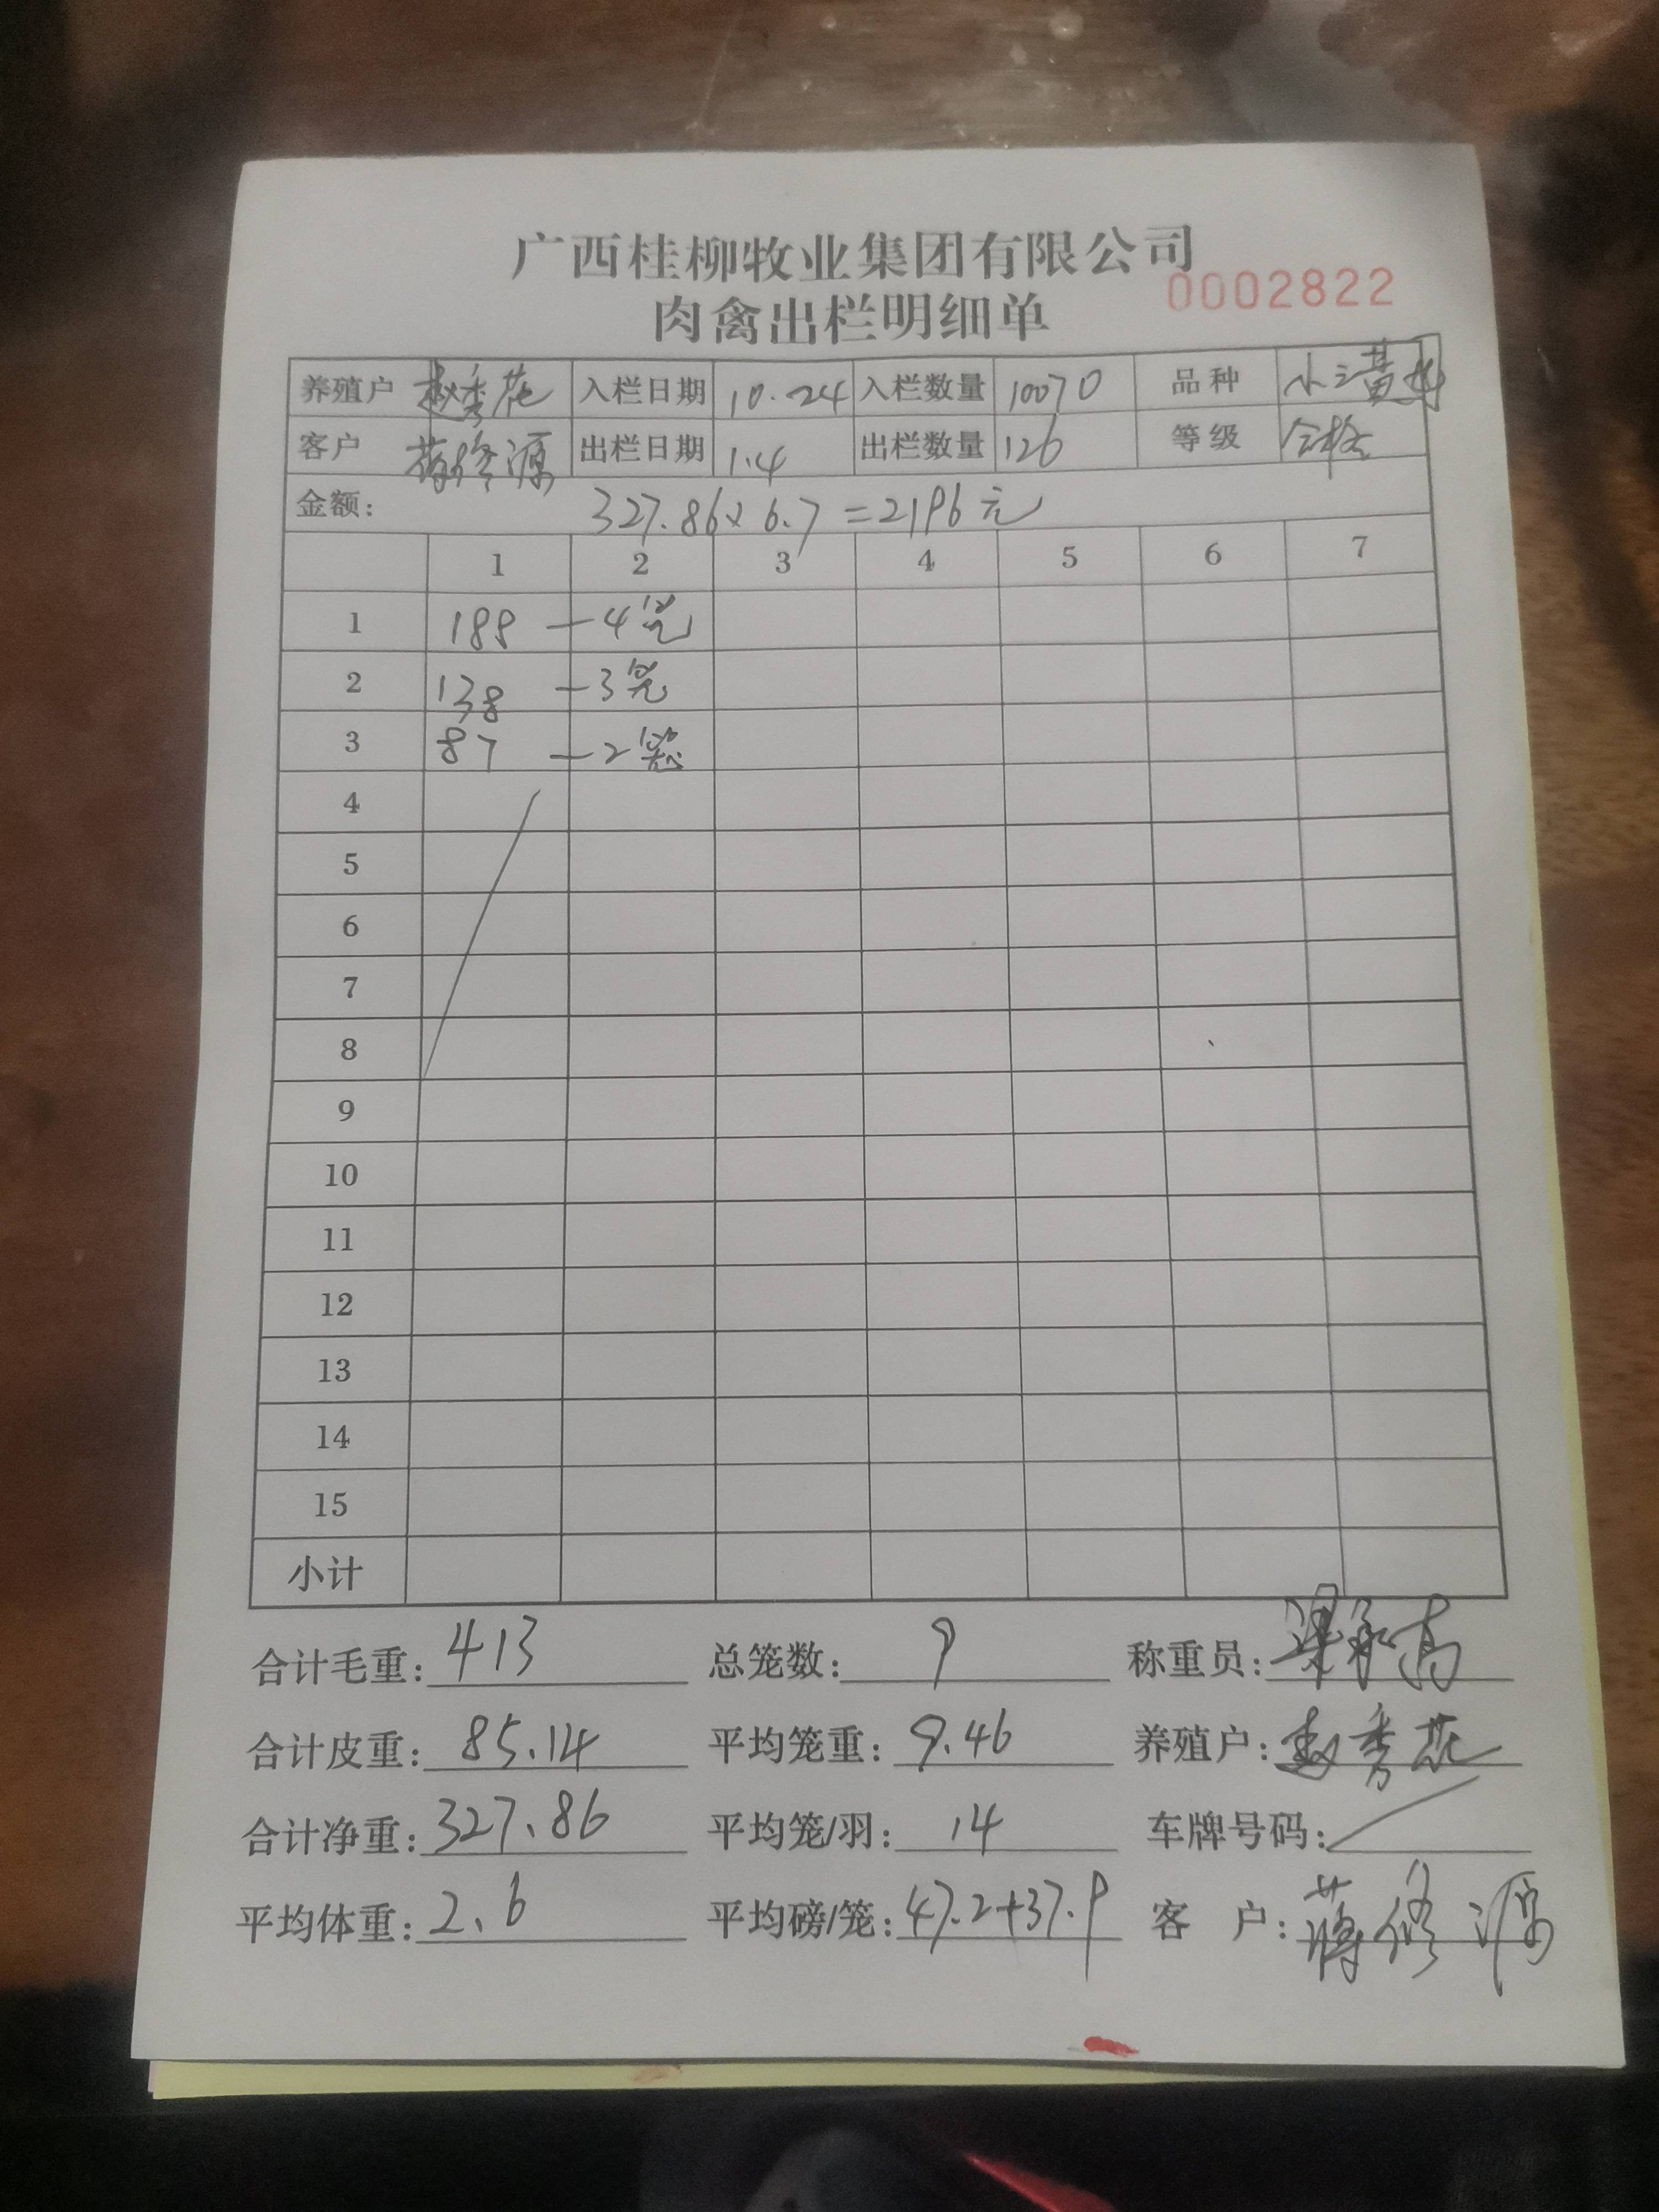 广西桂柳牧业集团有限公司
0002822
肉禽出栏明细单
养殖户 赵秀花 入栏日期 10.24 入栏数量 10070 品种 小三黄
客户 蒋修源 出栏日期 1.4 出栏数量 126 等级 合格
金额: 327.86×6.7=2196元
1 2 3 4 5 6 7
1 188 —4笼
2 138 —3笼
3 87 —2笼
4
5
6
7
8
9
10
11
12
13
14
15
小计
合计毛重: 413 总笼数: 9 称重员:
合计皮重: 85.14 平均笼重: 9.46 养殖户: 赵秀花
合计净重: 327.86 平均笼/羽: 14 车牌号码:
平均体重: 2.6 平均磅/笼: 47.2+37.9 客户: 蒋修源